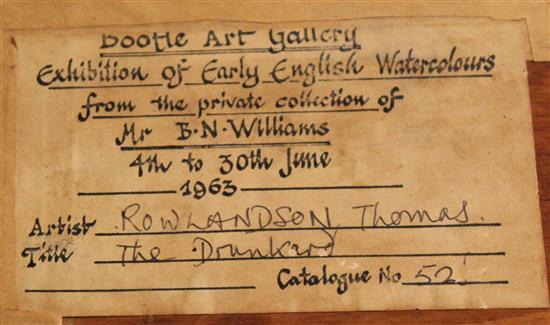 Bootle Art Gallery
Exhibition of Early English Watercolours
from the private collection of
Mr B·N·Williams
4th to 30th June
1963
Artist ROWLANDSON, Thomas.
Title The Drunkard
Catalogue No 52.